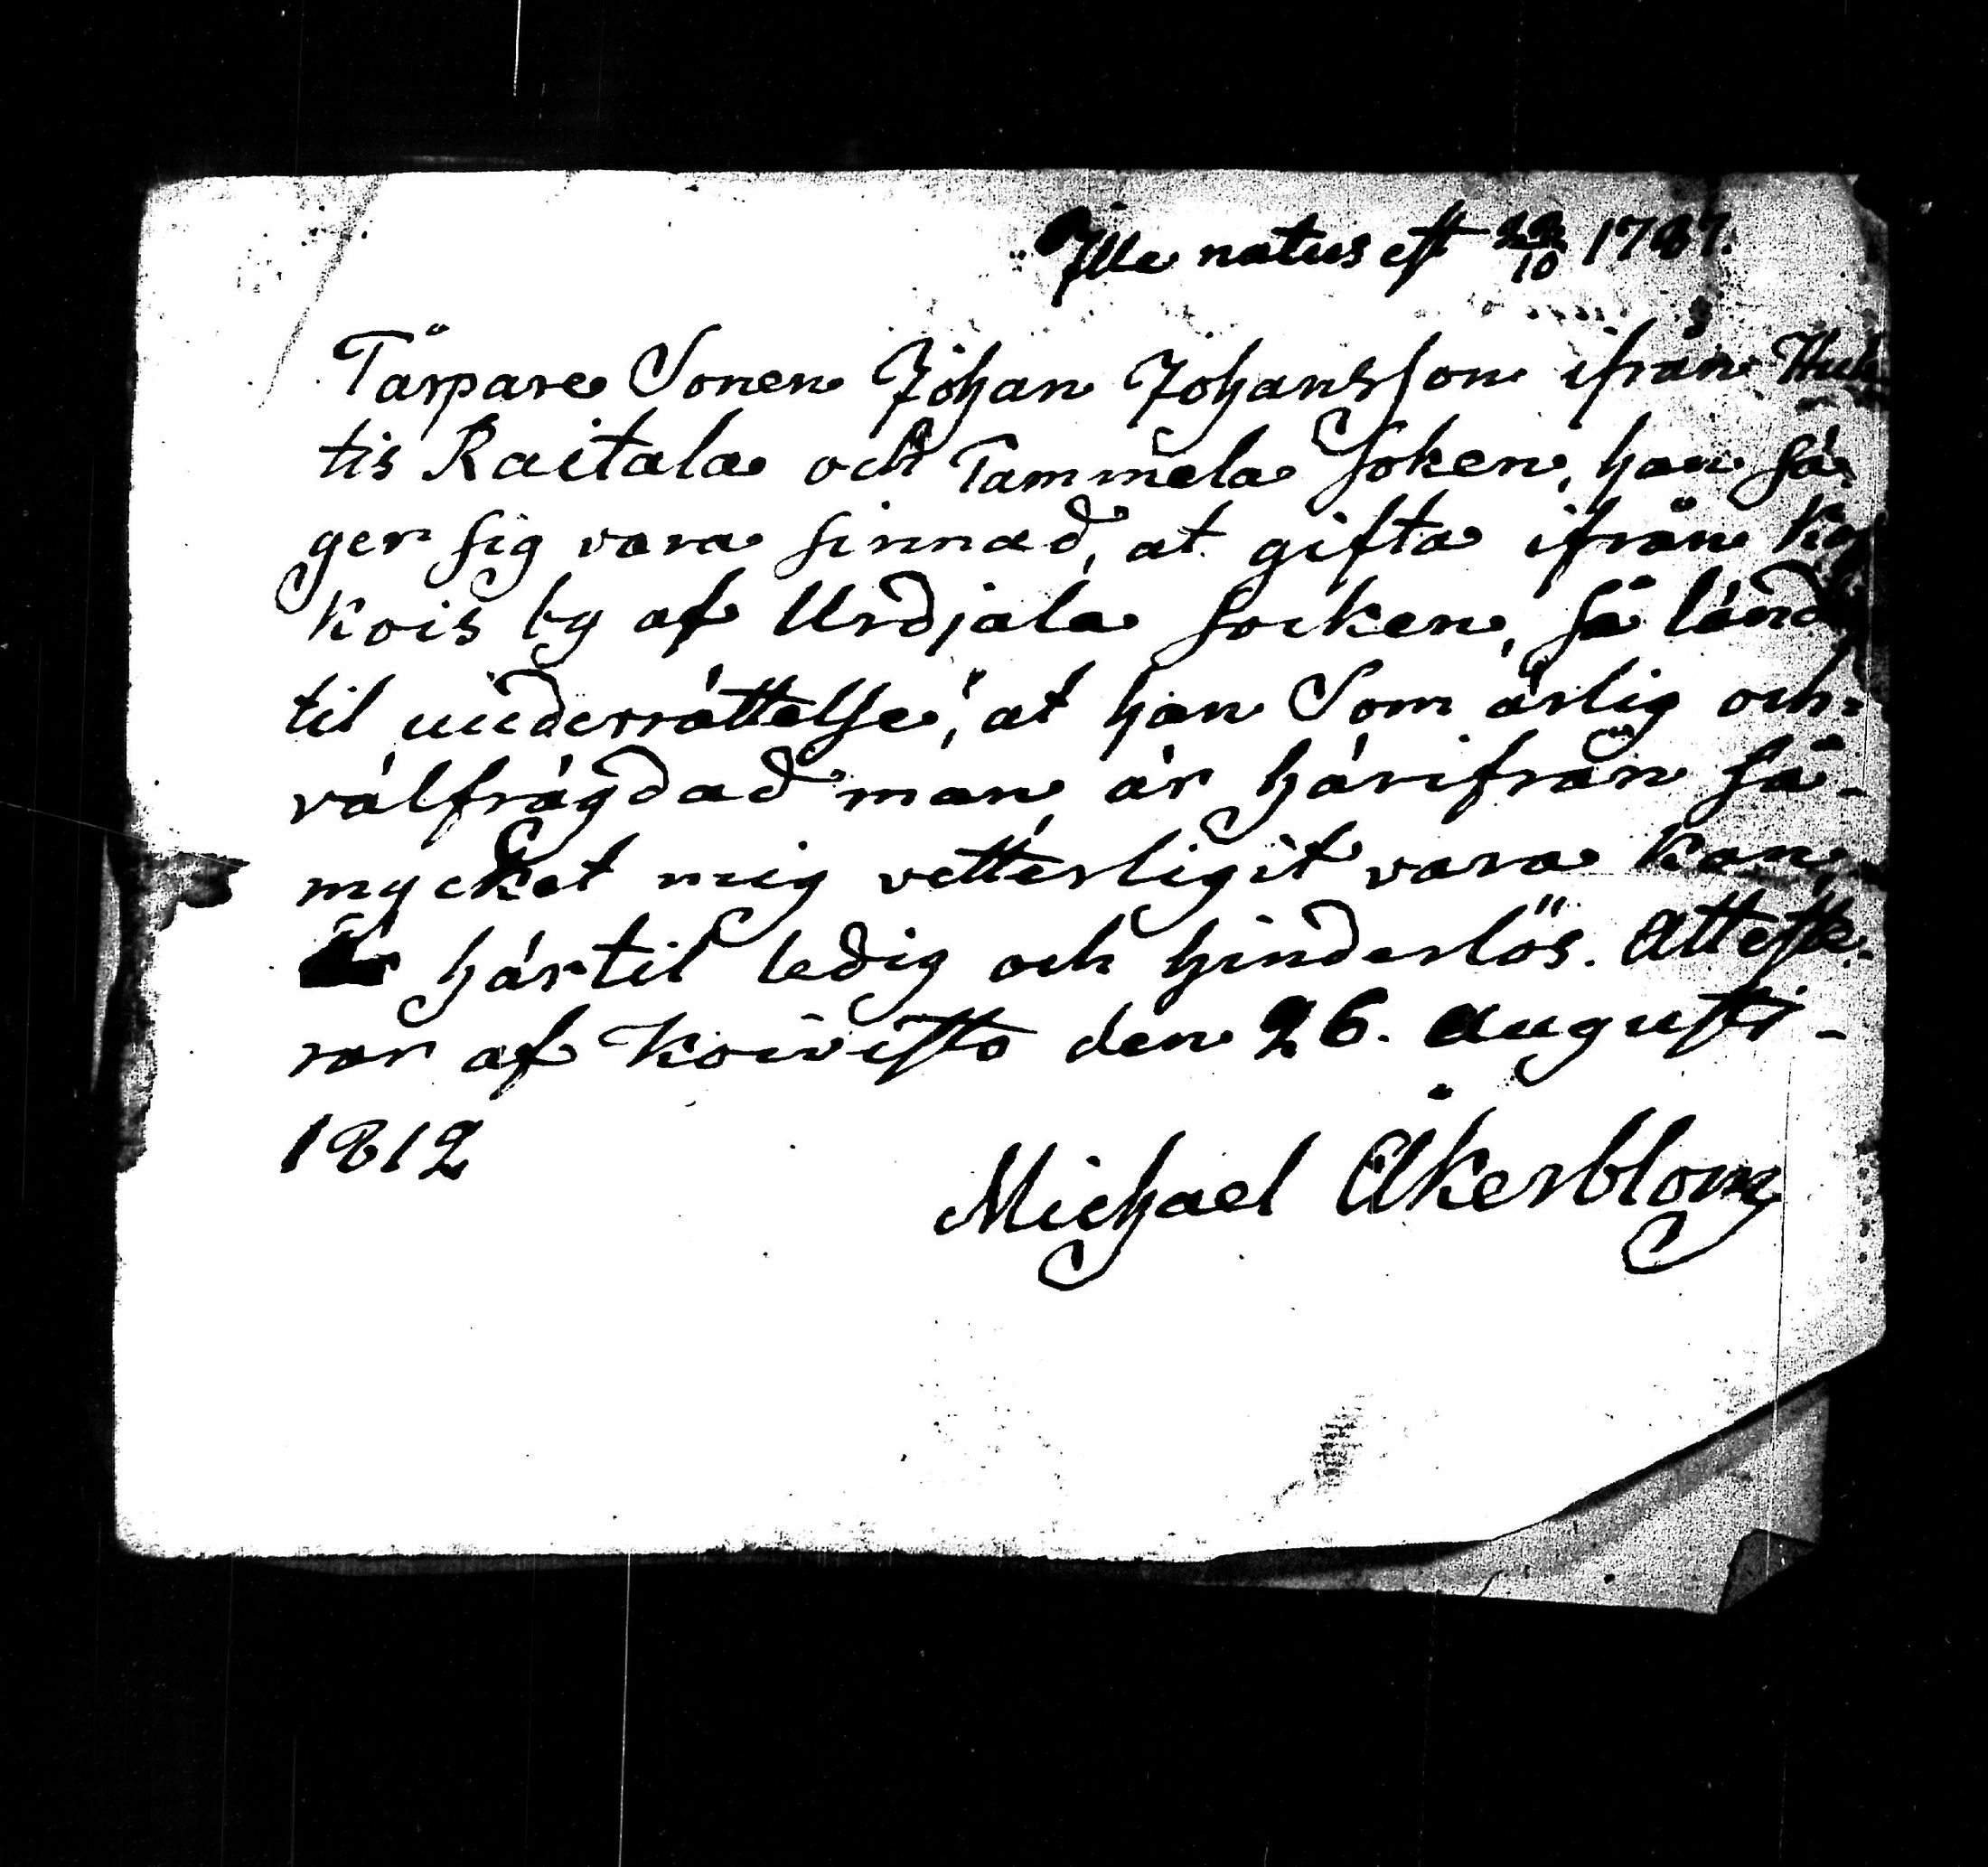 Ille natus est 22/10 1787.
Tårpare Sonen Johan Johansson ifrån
tis Raitala och Tammela Soken, han så-
ger sig vara sinnad, at gifta ifrån
kois by af Urdjala socken, så länd
til underråttelse, at han Som ärlig och
válfrágdad man ár hárifrån så-
mycket mig vetterligit vara kan,
Är hártil ledig och hinderlös. Attest.
rar af Koivisto den 26. Augusti -
1812
Michael Åkerblom